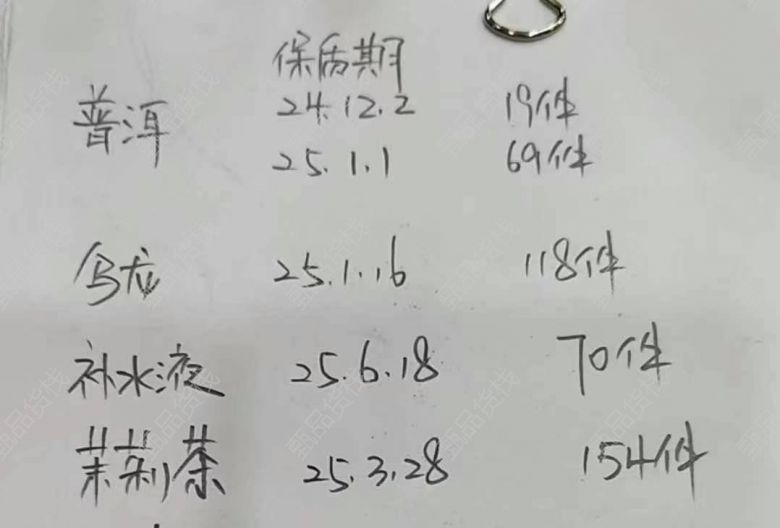 保质期
普洱 24.12.2 19件
25.1.1 69件
乌龙 25.1.16 118件
补水液 25.6.18 70件
茉莉茶 25.3.28 154件